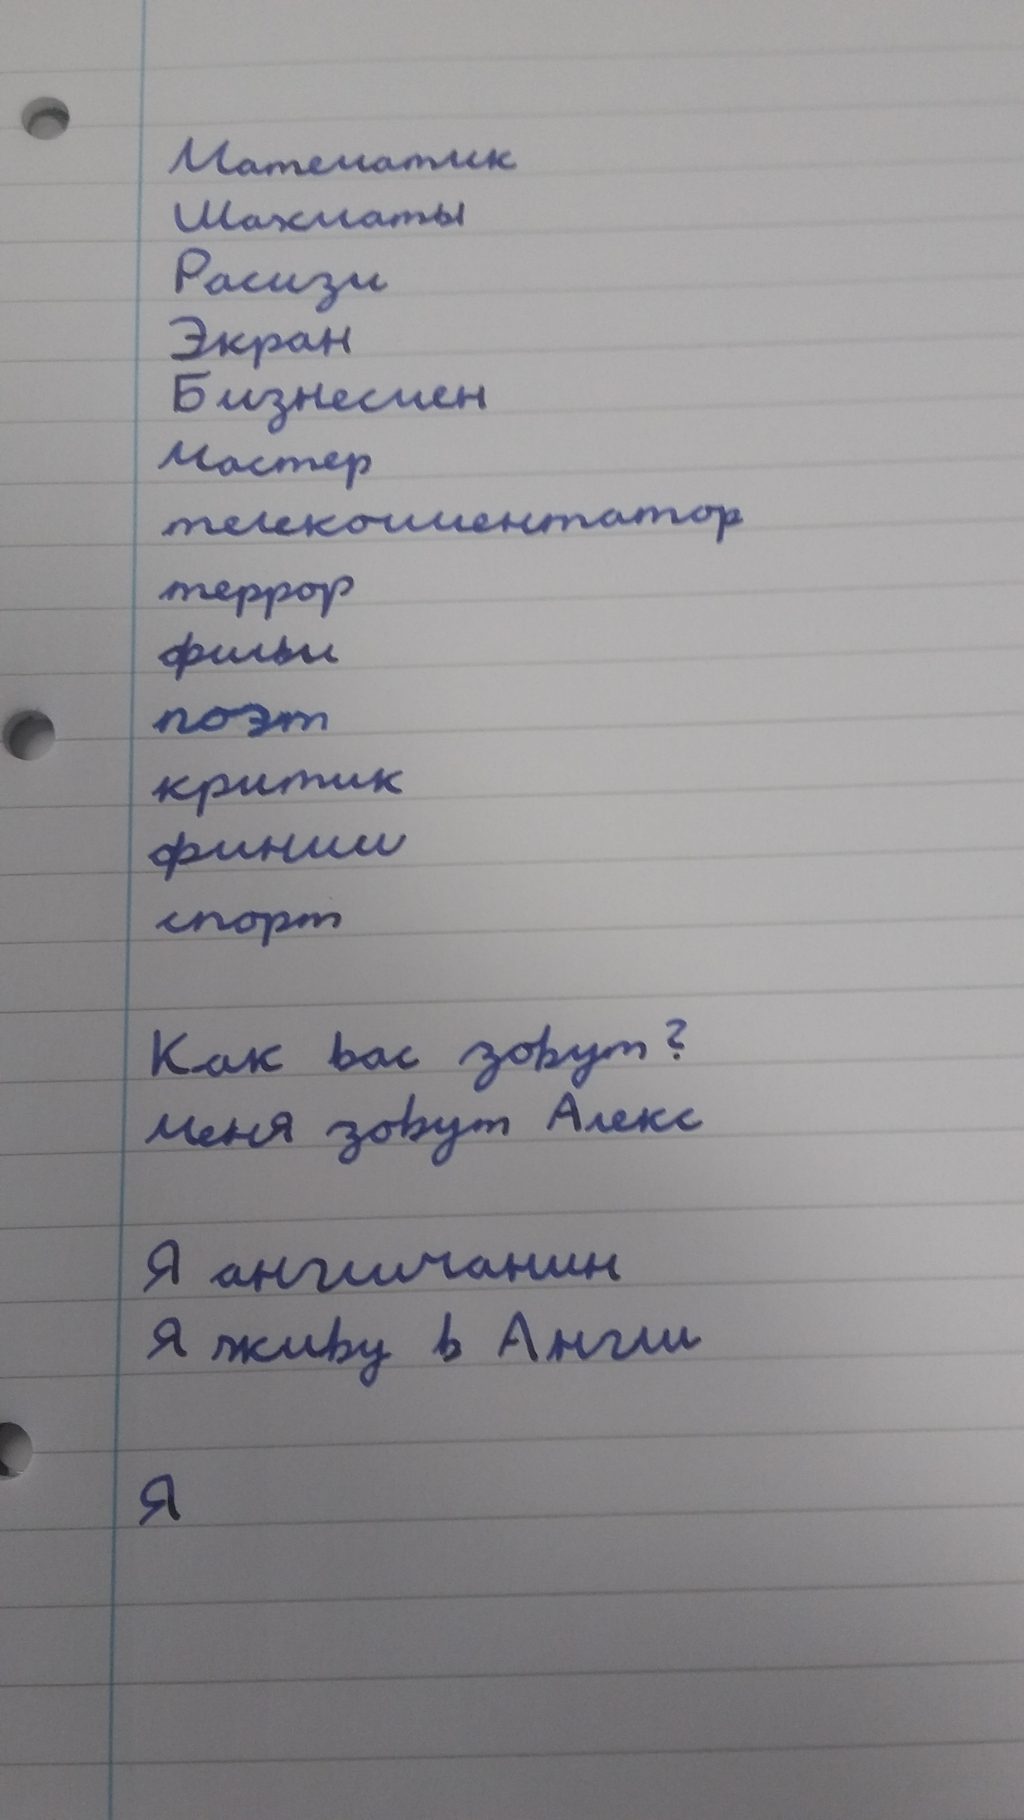 Математик
Шахматы
Расизм
Экран
Бизнесмен
Мастер
телекомментатор
террор
фильм
поэт
критик
финиш
спорт
Как вас зовут?
Меня зовут Алекс
Я англичанин
Я живу в Англи
Я